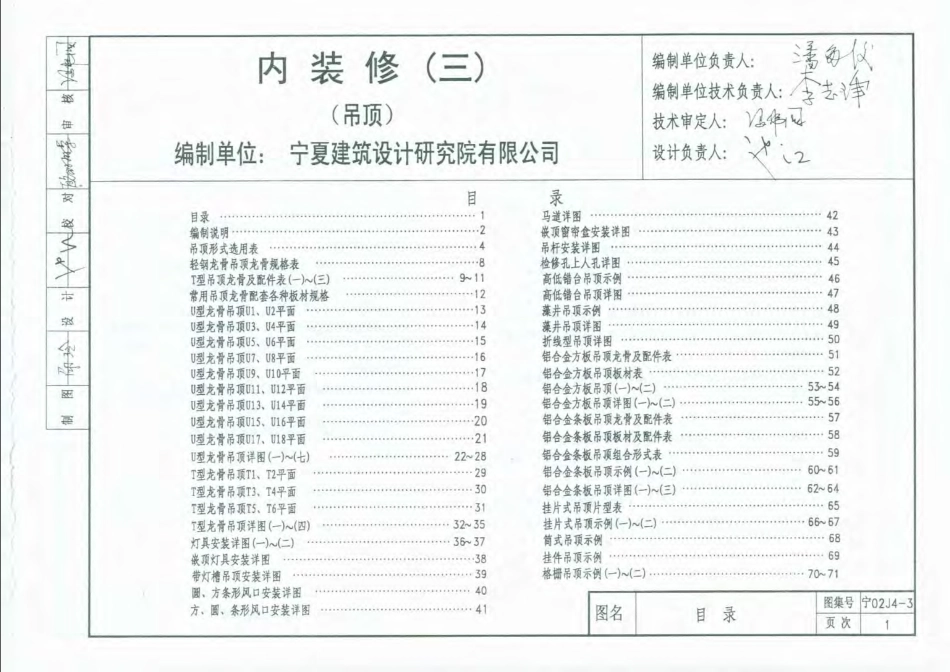 内 装 修 (三)
(吊顶)
编制单位: 宁夏建筑设计研究院有限公司
编制单位负责人:
编制单位技术负责人:
技术审定人:
设计负责人:
目 录
目录 1
编制说明 2
吊顶形式选用表 4
轻钢龙骨吊顶龙骨规格表 8
T型吊顶龙骨及配件表(一)~(三) 9~11
常用吊顶龙骨配套各种板材规格 12
U型龙骨吊顶U1、U2平面 13
U型龙骨吊顶U3、U4平面 14
U型龙骨吊顶U5、U6平面 15
U型龙骨吊顶U7、U8平面 16
U型龙骨吊顶U9、U10平面 17
U型龙骨吊顶U11、U12平面 18
U型龙骨吊顶U13、U14平面 19
U型龙骨吊顶U15、U16平面 20
U型龙骨吊顶U17、U18平面 21
U型龙骨吊顶详图(一)~(七) 22~28
T型龙骨吊顶T1、T2平面 29
T型龙骨吊顶T3、T4平面 30
T型龙骨吊顶T5、T6平面 31
T型龙骨吊顶详图(一)~(四) 32~35
灯具安装详图(一)~(二) 36~37
嵌顶灯具安装详图 38
带灯槽吊顶安装详图 39
圆、方条形风口安装详图 40
方、圆、条形风口安装详图 41
马道详图 42
嵌顶窗帘盒安装详图 43
吊杆安装详图 44
检修孔上人孔详图 45
高低错台吊顶示例 46
高低错台吊顶详图 47
藻井吊顶示例 48
藻井吊顶详图 49
折线型吊顶详图 50
铝合金方板吊顶龙骨及配件表 51
铝合金方板吊顶板材表 52
铝合金方板吊顶(一)~(二) 53~54
铝合金方板吊顶详图(一)~(二) 55~56
铝合金条板吊顶龙骨及配件表 57
铝合金条板吊顶板材及配件表 58
铝合金条板吊顶组合形式表 59
铝合金条板吊顶示例(一)~(二) 60~61
铝合金条板吊顶详图(一)~(三) 62~64
挂片式吊顶片型表 65
挂片式吊顶示例(一)~(二) 66~67
筒式吊顶示例 68
挂件吊顶示例 69
格栅吊顶示例(一)~(二) 70~71
图名 目 录 图集号 宁02J4-3
页 次 1
审 核
校 对
设 计
制 图